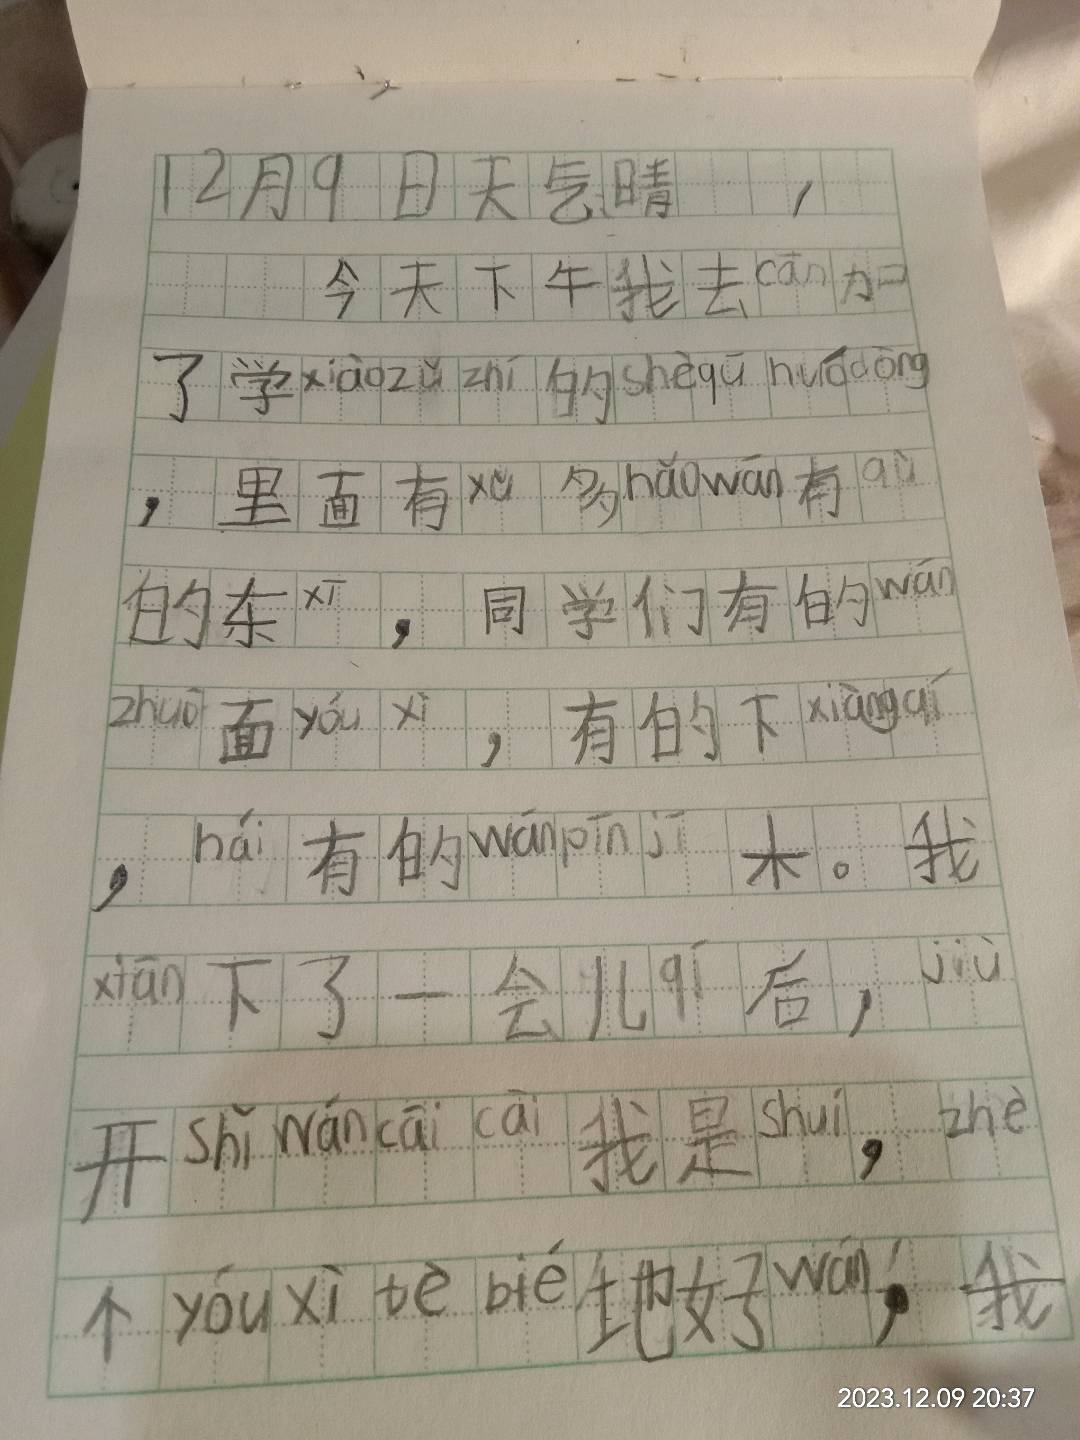 12月9日天气晴
今天下午我去cān加
了学xiàozǔzhí的shèqūhuódòng
，里面有xǔ多hǎowán有qù
的东xī，同学们有的wán
zhuō面yóuxì，有的下xiàngqí
，hái有的wánpīnjī木。我
xiān下了一会儿qí后，jiù
开shǐwáncāicāi我是shuí，zhè
个yóuxìtèbié地好wán，我
2023.12.09 20:37